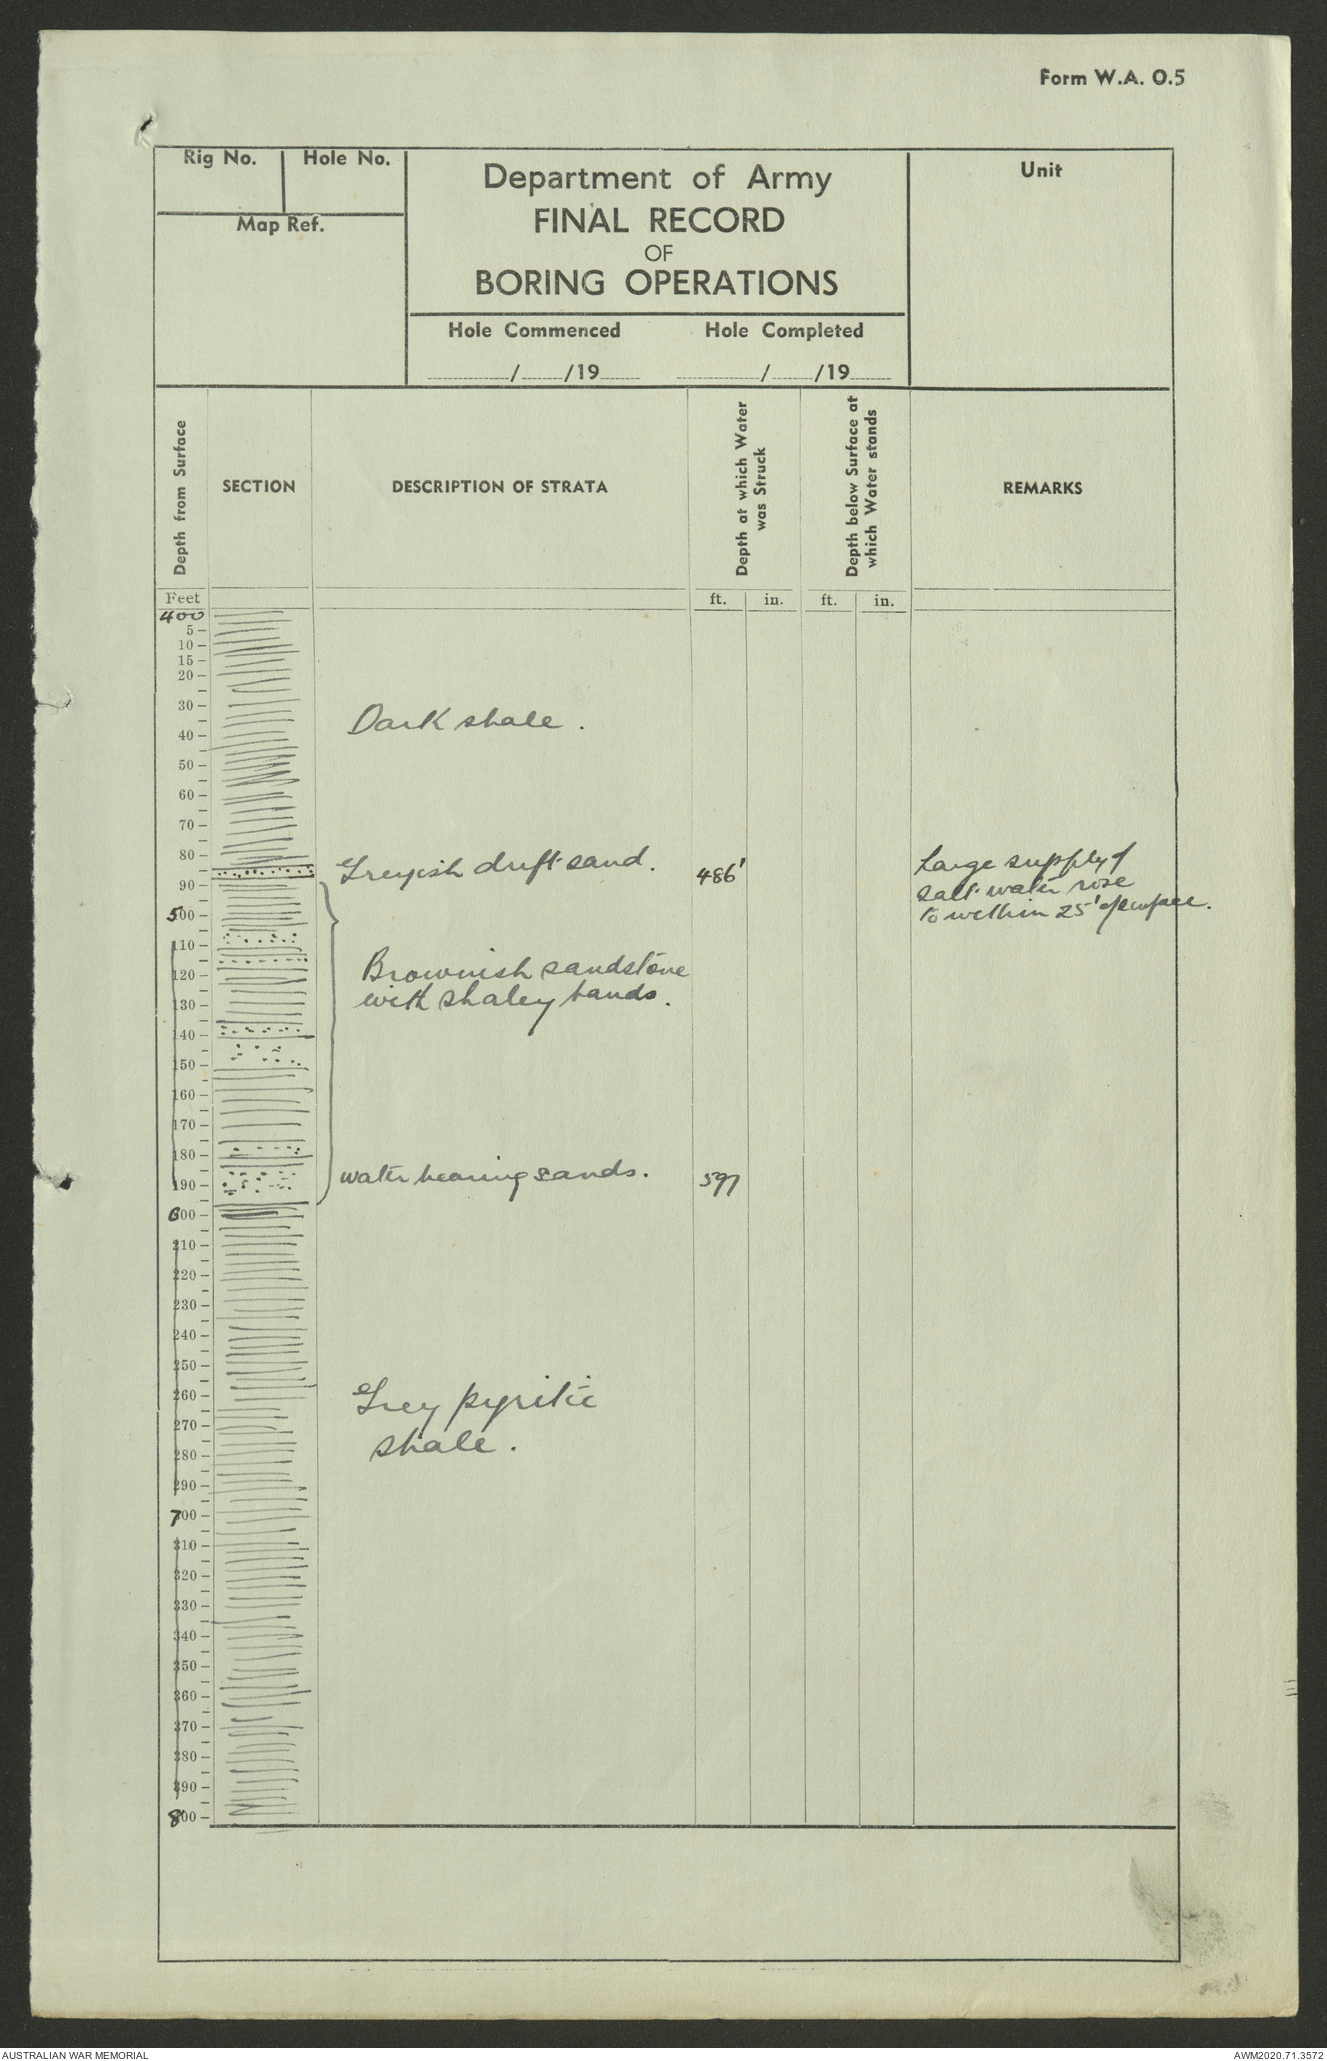 Form W.A. O.5
Rig No.
Hole No.
Map Ref.
Department of Army
FINAL RECORD
OF
BORING OPERATIONS
Hole Commenced
Hole Completed
/ /19
/ /19
Unit
Depth from Surface
SECTION
DESCRIPTION OF STRATA
Depth at which Water
was Struck
Depth below Surface at
which Water stands
REMARKS
Feet
ft.
in.
ft.
in.
400
5
10
15
20
30
Dark shale.
40
50
60
70
80
Greyish drift sand.
486'
Large supply of
salt water rose
to within 25' of surface.
90
500
110
Brownish sandstone
with shaley bands.
120
130
140
150
160
170
180
water bearing sands.
597
190
600
210
220
230
240
250
260
Grey pyritic
shale.
270
280
290
700
310
320
330
340
350
360
370
380
390
800
AUSTRALIAN WAR MEMORIAL
AWM2020.71.3572